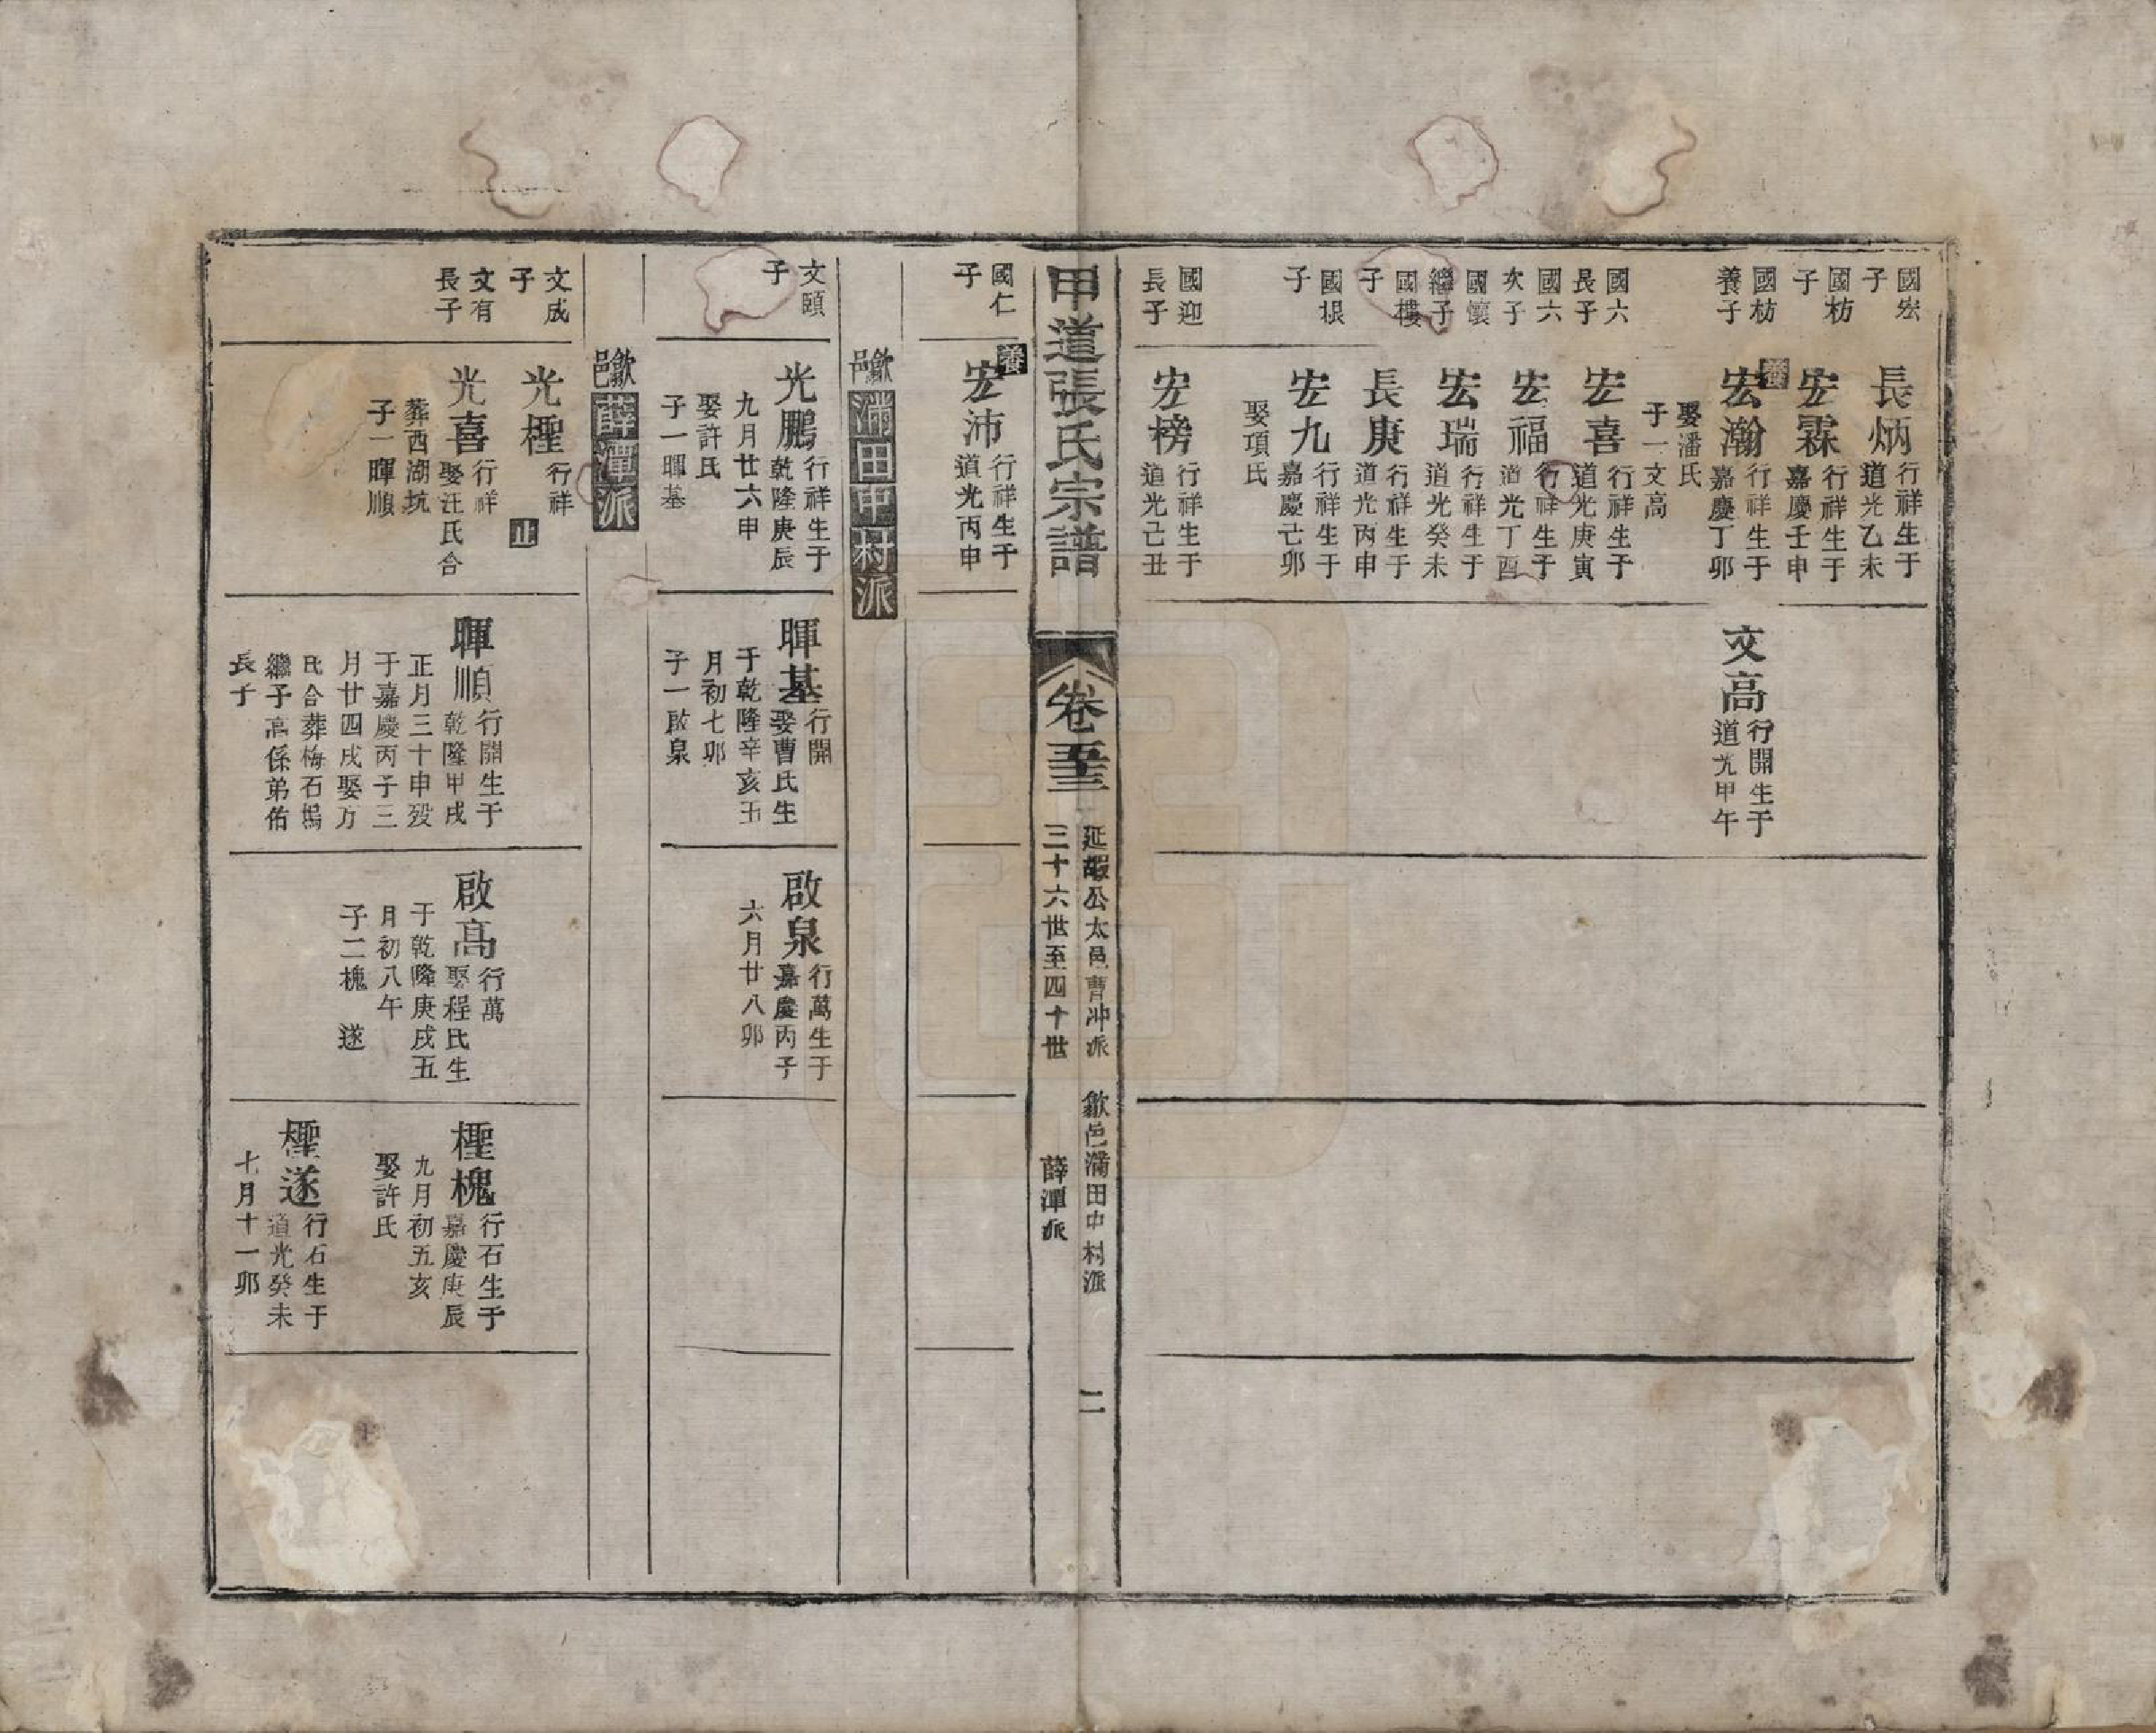 國宏
子
長炳
行祥生于
道光乙未
國枋
子
宏霖
行祥生于
嘉慶壬申
國枋
養子
養
宏瀚
行祥生于
嘉慶丁卯
娶潘氏
子一文高
文高
行開生于
道光甲午
國六
長子
宏喜
行祥生于
道光庚寅
國六
次子
宏福
行祥生于
道光丁酉
國懷
繼子
宏瑞
行祥生于
道光癸未
國樓
子
長庚
行祥生于
道光丙申
國根
子
宏九
行祥生于
嘉慶己卯
娶項氏
國迎
長子
宏榜
行祥生于
道光己丑
甲道張氏宗譜
卷五三
延嘏公太邑曹冲派 歙邑滿田中村派
三十六世至四十世 薛潭派
二
國仁
子
養
宏沛
行祥生于
道光丙申
歙邑滿田中村派
文頤
子
光鵬
行祥生于
乾隆庚辰
九月廿六申
娶許氏
子一暉基
暉基
行開
娶曹氏生
于乾隆辛亥五
月初七卯
子一啟泉
啟泉
行萬生于
嘉慶丙子
六月廿八卯
歙邑薛潭派
文成
子
光檉
行祥
止
文有
長子
光喜
行祥
娶汪氏合
葬西湖坑
子一暉順
暉順
行開生于
乾隆甲戌
正月三十申歿
于嘉慶丙子三
月廿四戌娶方
氏合葬梅石塢
繼子高係弟佑
長子
啟高
行萬
娶程氏生
于乾隆庚戌五
月初八午
子二槐 遂
檉槐
行石生于
嘉慶庚辰
九月初五亥
娶許氏
檉遂
行石生于
道光癸未
七月十一卯